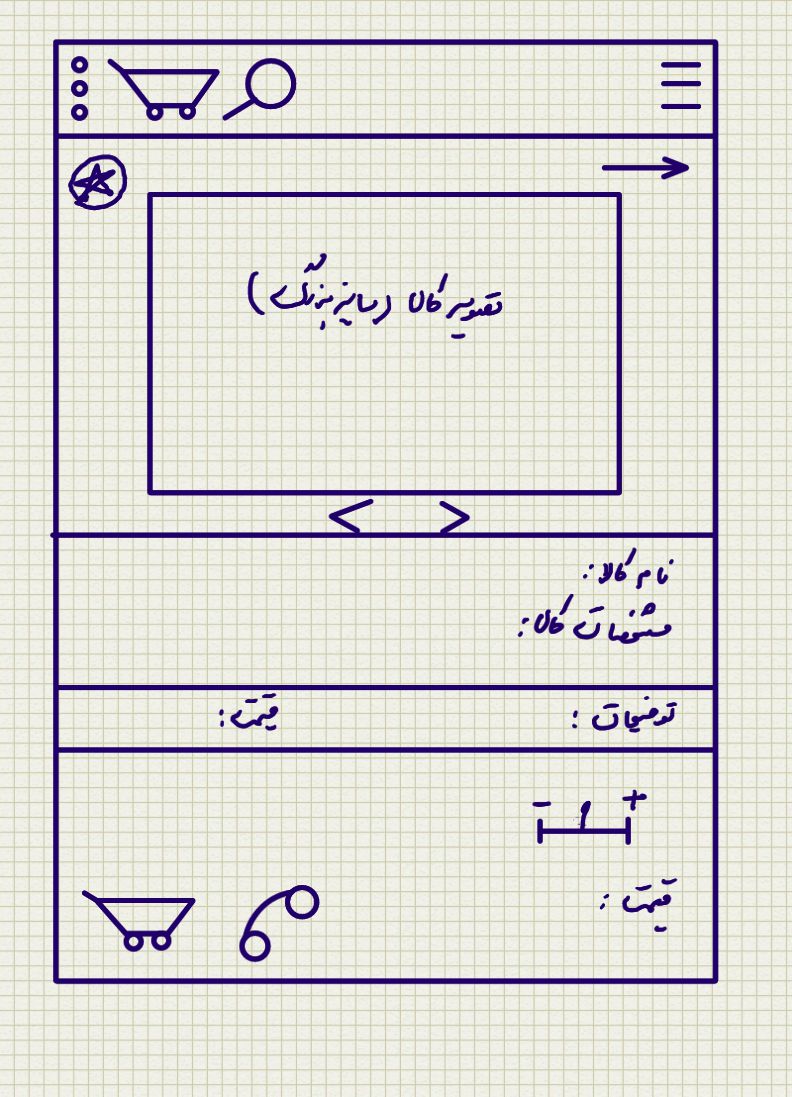 تصویر کالا (سایز بزرگ)
نام کالا:
مشخصات کالا:
توضیحات: قیمت:
- 1 +
قیمت: